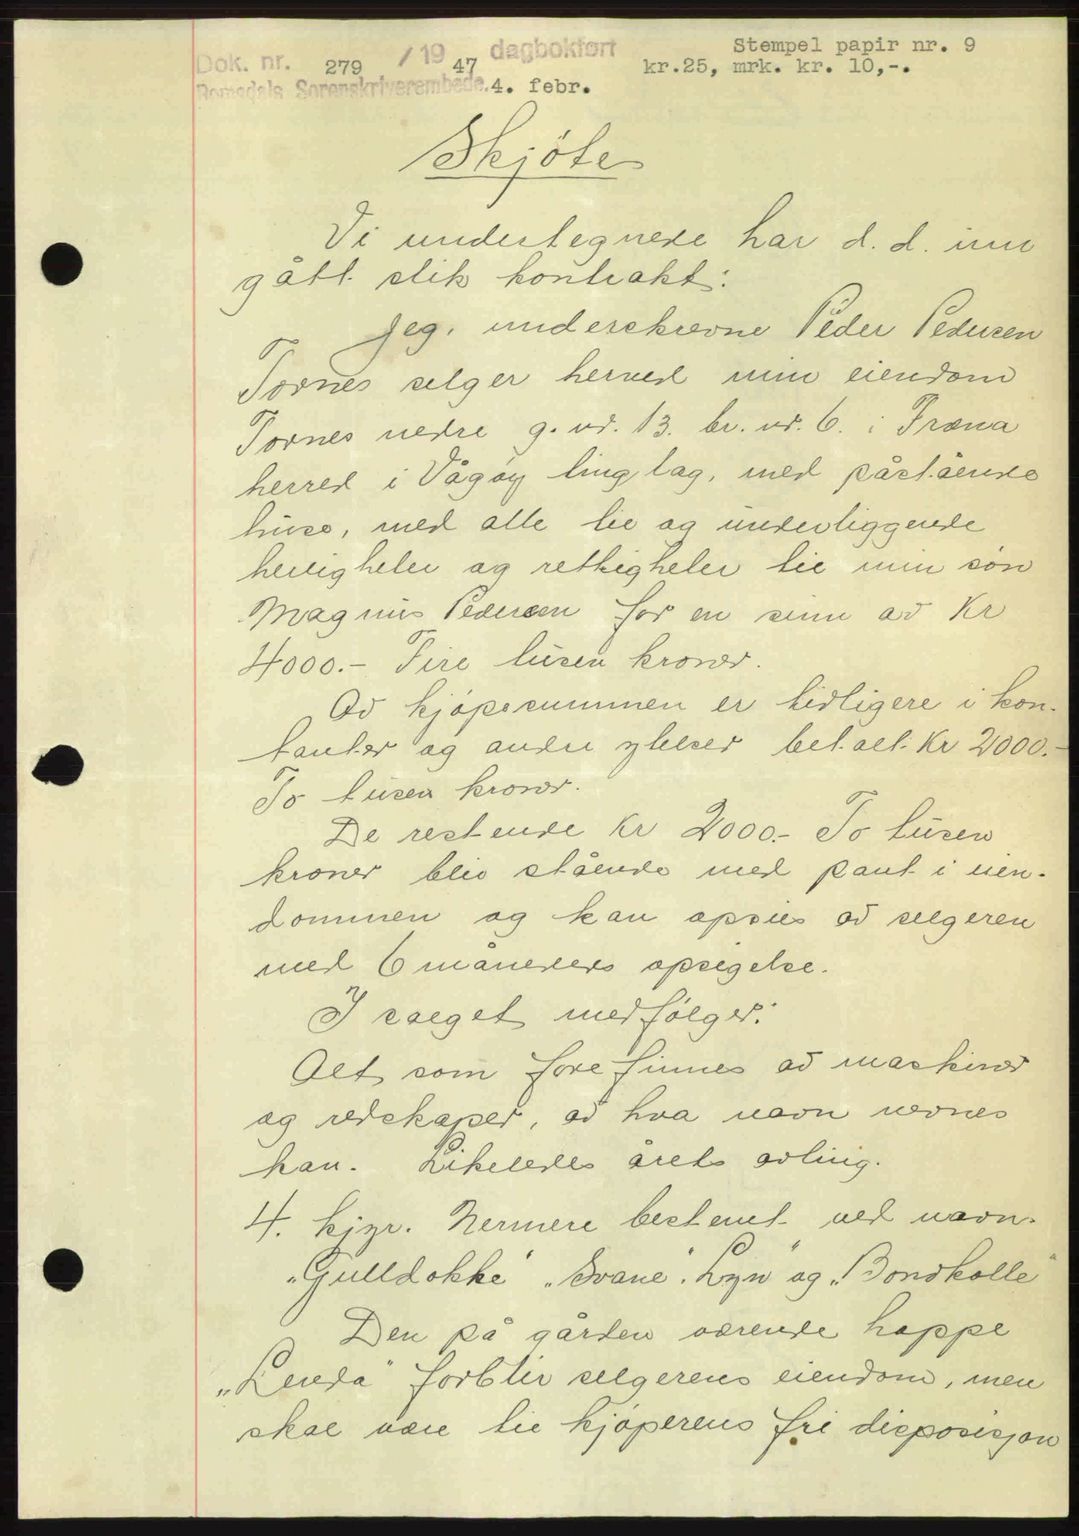 Stempel papir nr. 9
Dok. nr. 279 / 19 47 dagbokført kr.25, mrk. kr. 10,-.
Romsdals Sorenskriverembede. 4. febr.
Skjöte
Vi undertegnede har d. d. inn
gått slik kontrakt:
Jeg, underskrevne Peder Pedersen
Tornes selger herved min eiendom
Tornes nedre g. nr. 13. br. nr. 6. i Fræna
herred i Vågøy tinglag, med påstående
huse, med alle til og underliggende
herligheter og rettigheter til min sön
Magnus Pedersen for en sum av Kr
4000.- Fire tusen kroner.
Av kjöpesummen er tidligere i kon-
tanter og andre ytelser betalt Kr 2000.-
To tusen kroner.
De restende Kr 2000.- To tusen
kroner bliv stående med pant i eien-
dommen og kan opsies av selgeren
med 6 måneders opsigelse.
I salget medfölger:
Alt som forefinnes av maskiner
og redskaper, av hva navn nevnes
kan. Likeledes årets avling.
4. kjyr. Nermere bestemt ved navn.
„Gulldokke" „Svane". Lyn" og „Bondkolle"
Den på gården værende hoppe
„Lenda" forblir selgerens eiendom, men
skal være til kjöperens fri disposisjon